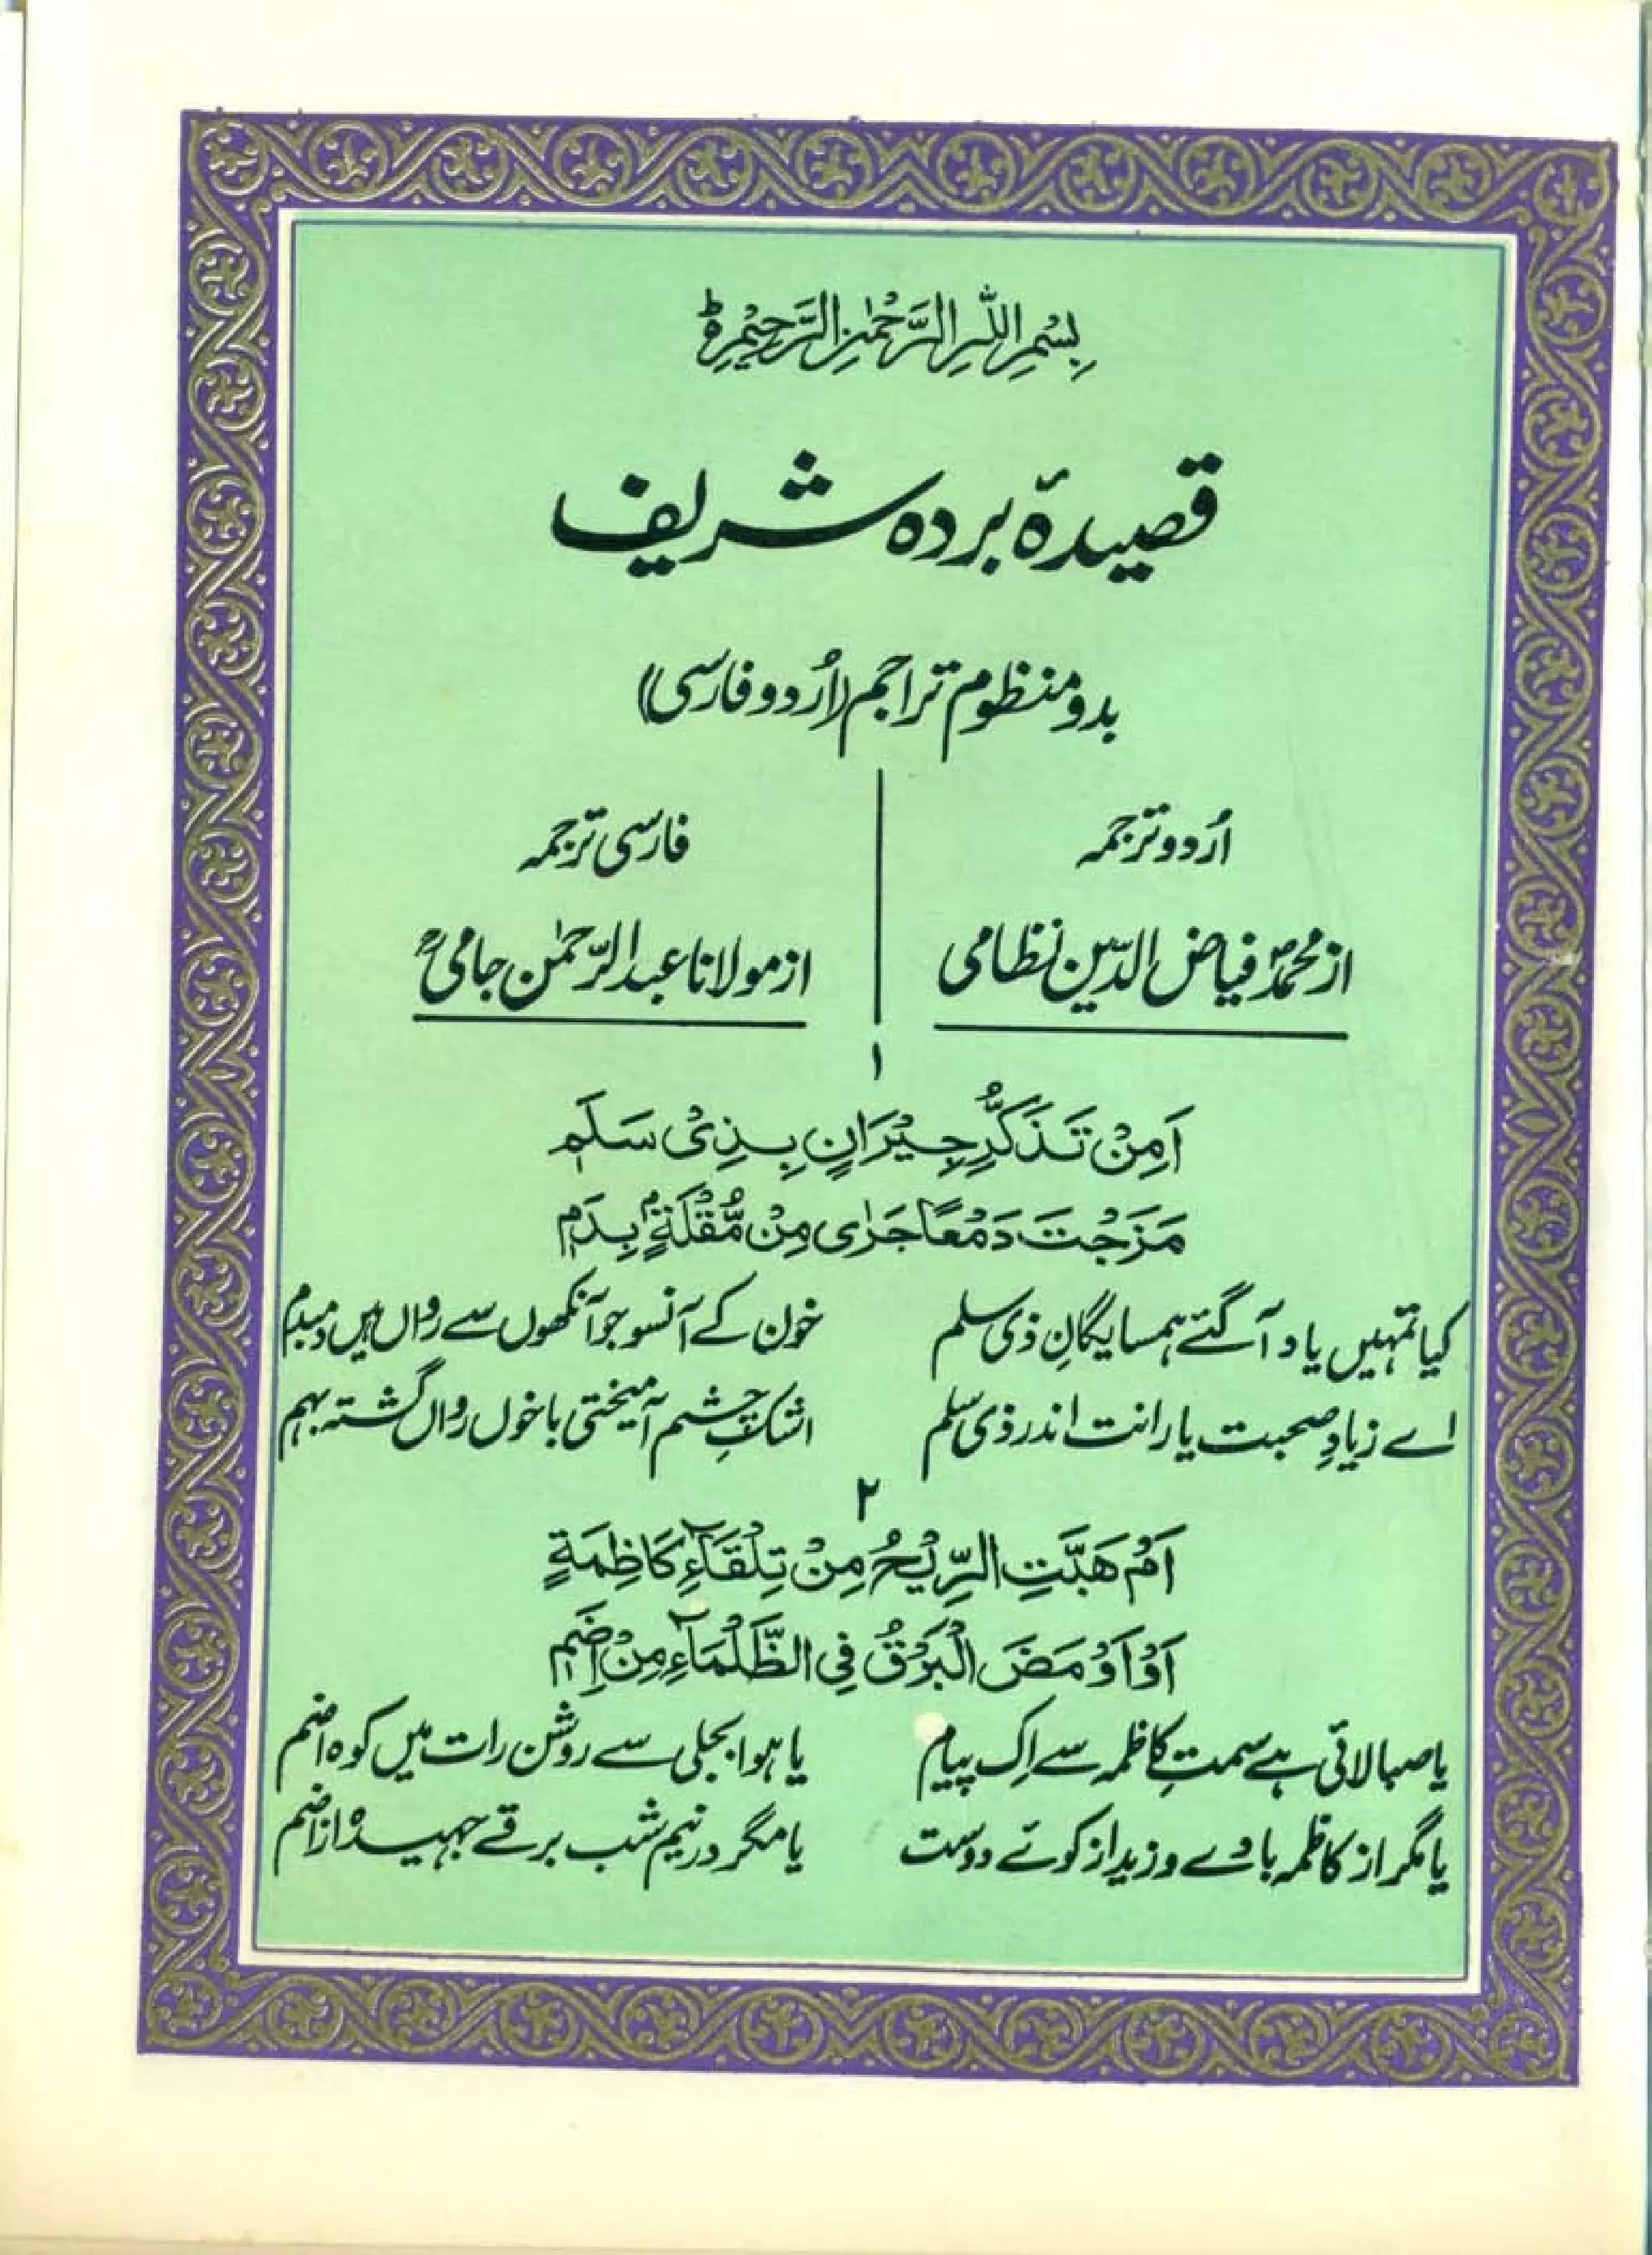 بِسْمِ اللّٰہِ الرَّحْمٰنِ الرَّحِیْمِ ط
قصیدۂ بردہ شریف
بدو منظوم تراجم (اُردو فارسی)
اُردو ترجمہ
از محمدؐ فیاض الدّین نظامی
فارسی ترجمہ
از مولانا عبدالرّحمٰن جامیؒ
۱
اَمِنْ تَذَكُّرِ جِيْرَانٍ بِذِيْ سَلَمٖ
مَزَجْتَ دَمْعًا جَرٰى مِنْ مُّقْلَةٍ بِدَمٖ
کیا تمہیں یاد آگئے ہمسایگانِ ذی سلم خون کے آنسو جو آنکھوں سے رواں ہیں دمبدم
اے زیادِ صحبت یارانت اندر ذی سلم اشکِ چشم آمیختی با خوں رواں گشتہ بہم
۲
اَمْ هَبَّتِ الرِّيْحُ مِنْ تِلْقَآءِ كَاظِمَةٍ
اَوْ اَوْمَضَ الْبَرْقُ فِي الظَّلْمَآءِ مِنْ اِضَمٖ
یا صبا لائی ہے سمتِ کاظمہ سے اِک پیام یا ہوا بجلی سے روشن رات میں کوہ اضم
یا مگر از کاظمہ بادے وزید از کوئے دوست یا مگر در نیم شب برقے جہیدہ از اضم